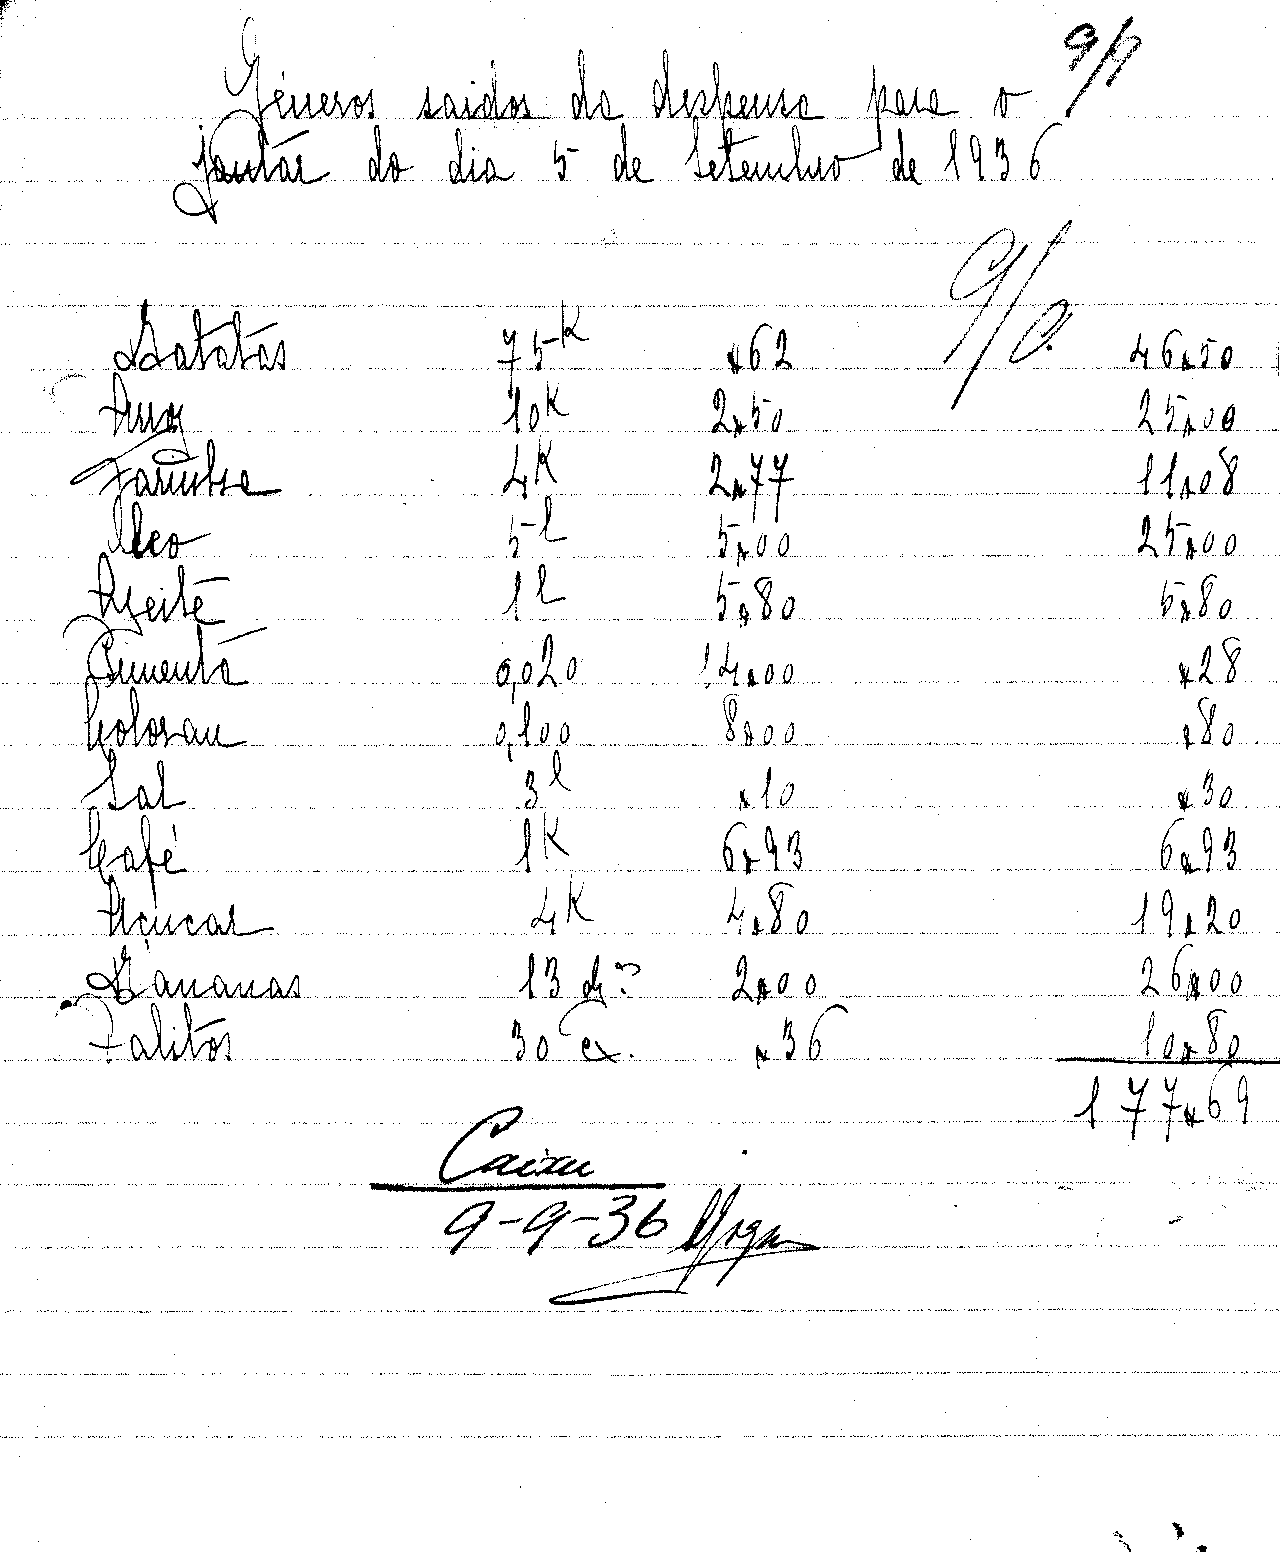 9/9
Géneros saidos da despensa para o
jantar do dia 5 de Setembro de 1936
Batatas 75K $62 46$50
Arroz 10K 2$50 25$00
Farinha 4K 2$77 11$08
Oleo 5l 5$00 25$00
Azeite 1l 5$80 5$80
Pimenta 0,020 14$00 $28
Colorau 0,100 8$00 $80
Sal 3l $10 $30
Café 1K 6$93 6$93
Açucar 4K 4$80 19$20
Bananas 13 dz 2$00 26$00
Palitos 30 cx. $36 10$80
177$69
Caixa
9-9-36